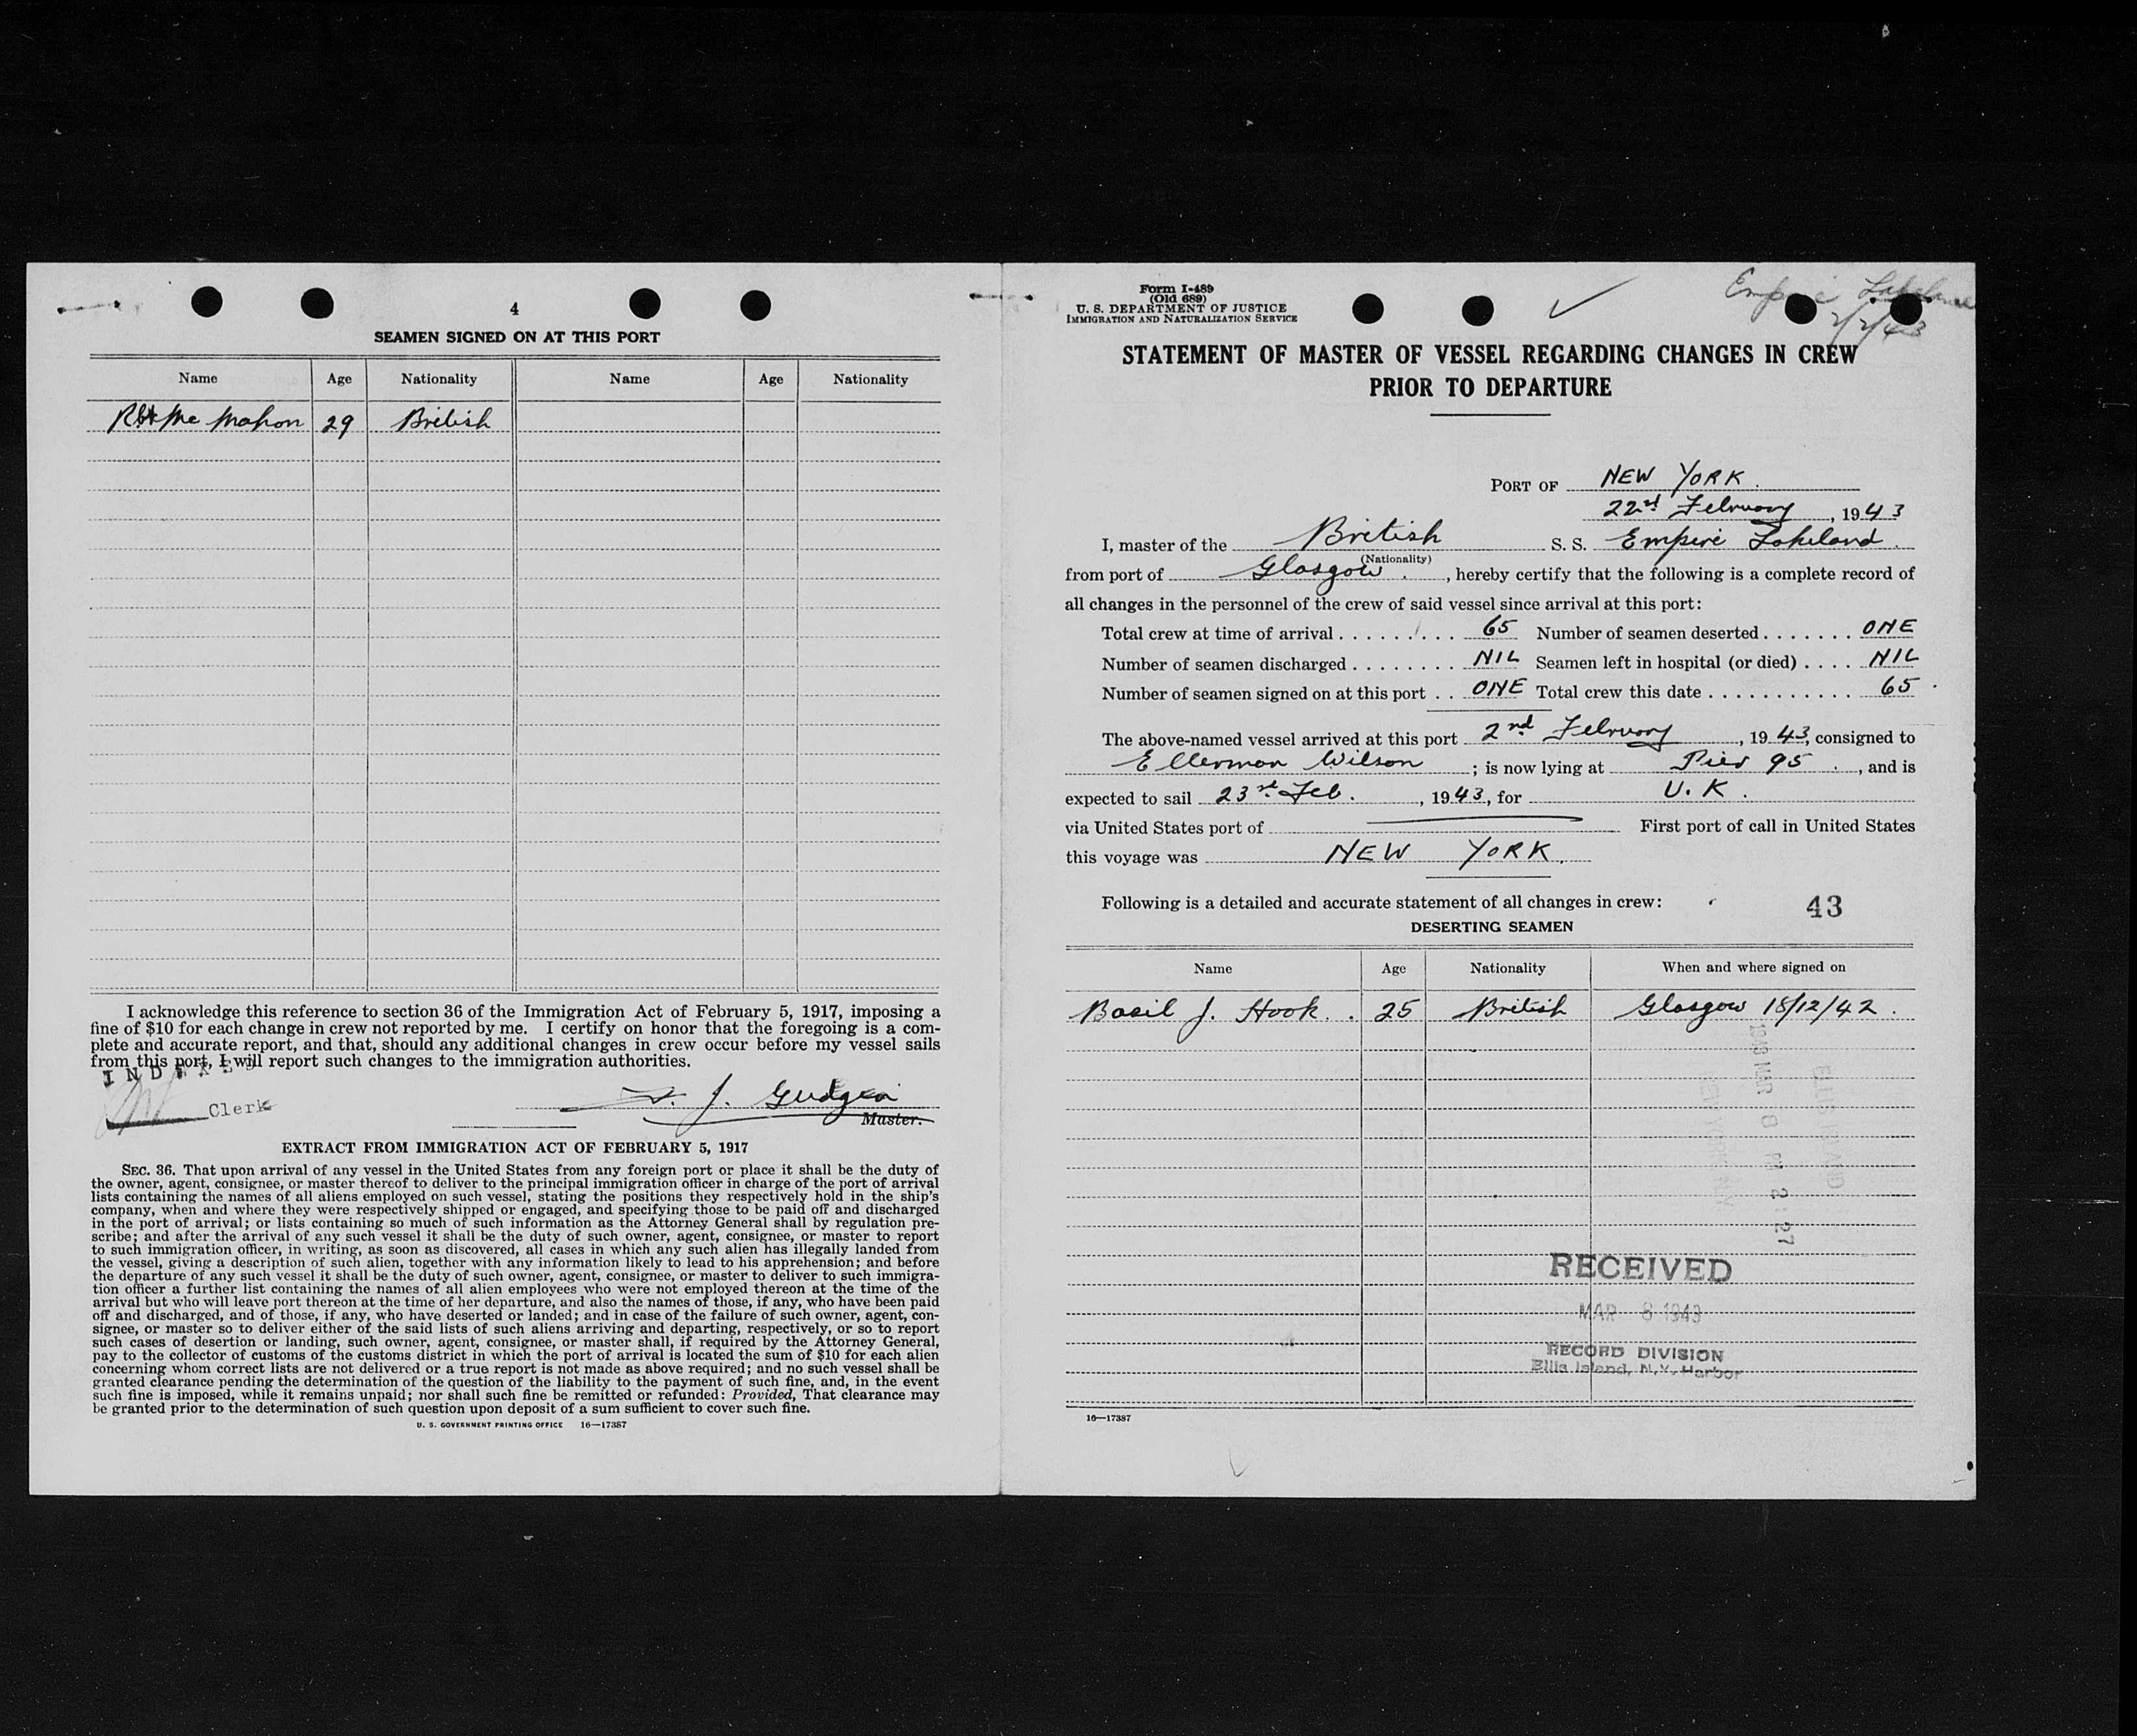 4
SEAMEN SIGNED ON AT THIS PORT
Name Age Nationality Name Age Nationality
Mc Mahon 29 British
I acknowledge this reference to section 36 of the Immigration Act of February 5, 1917, imposing a
fine of $10 for each change in crew not reported by me. I certify on honor that the foregoing is a com-
plete and accurate report, and that, should any additional changes in crew occur before my vessel sails
from this port, I will report such changes to the immigration authorities.
INDEXED
Clerk
J. Gudgin
Master.
EXTRACT FROM IMMIGRATION ACT OF FEBRUARY 5, 1917
SEC. 36. That upon arrival of any vessel in the United States from any foreign port or place it shall be the duty of
the owner, agent, consignee, or master thereof to deliver to the principal immigration officer in charge of the port of arrival
lists containing the names of all aliens employed on such vessel, stating the positions they respectively hold in the ship's
company, when and where they were respectively shipped or engaged, and specifying those to be paid off and discharged
in the port of arrival; or lists containing so much of such information as the Attorney General shall by regulation pre-
scribe; and after the arrival of any such vessel it shall be the duty of such owner, agent, consignee, or master to report
to such immigration officer, in writing, as soon as discovered, all cases in which any such alien has illegally landed from
the vessel, giving a description of such alien, together with any information likely to lead to his apprehension; and before
the departure of any such vessel it shall be the duty of such owner, agent, consignee, or master to deliver to such immigra-
tion officer a further list containing the names of all alien employees who were not employed thereon at the time of the
arrival but who will leave port thereon at the time of her departure, and also the names of those, if any, who have been paid
off and discharged, and of those, if any, who have deserted or landed; and in case of the failure of such owner, agent, con-
signee, or master so to deliver either of the said lists of such aliens arriving and departing, respectively, or so to report
such cases of desertion or landing, such owner, agent, consignee, or master shall, if required by the Attorney General,
pay to the collector of customs of the customs district in which the port of arrival is located the sum of $10 for each alien
concerning whom correct lists are not delivered or a true report is not made as above required; and no such vessel shall be
granted clearance pending the determination of the question of the liability to the payment of such fine, and, in the event
such fine is imposed, while it remains unpaid; nor shall such fine be remitted or refunded: Provided, That clearance may
be granted prior to the determination of such question upon deposit of a sum sufficient to cover such fine.
U. S. GOVERNMENT PRINTING OFFICE 16—17387
Form I-489
(Old 689)
U. S. DEPARTMENT OF JUSTICE
IMMIGRATION AND NATURALIZATION SERVICE
Empire Lakeland
2/2/43
STATEMENT OF MASTER OF VESSEL REGARDING CHANGES IN CREW
PRIOR TO DEPARTURE
PORT OF NEW YORK.
22nd February, 1943
I, master of the British S. S. Empire Lakeland.
(Nationality)
from port of Glasgow., hereby certify that the following is a complete record of
all changes in the personnel of the crew of said vessel since arrival at this port:
Total crew at time of arrival . . . . . . . . . 65 Number of seamen deserted . . . . . . . ONE
Number of seamen discharged . . . . . . . . NIL Seamen left in hospital (or died) . . . . NIL
Number of seamen signed on at this port . . ONE Total crew this date . . . . . . . . . . . 65
The above-named vessel arrived at this port 2nd February, 1943, consigned to
Ellerman Wilson; is now lying at Pier 95., and is
expected to sail 23rd Feb., 1943, for U.K.
via United States port of First port of call in United States
this voyage was NEW YORK.
Following is a detailed and accurate statement of all changes in crew:
43
DESERTING SEAMEN
Name Age Nationality When and where signed on
Basil J. Hook. 25 British Glasgow 18/12/42.
1943 MAR 8 PM 2:27
ELLIS ISLAND
RECEIVED
MAR 8 1943
RECORD DIVISION
Ellis Island, N.Y. Harbor
16—17387